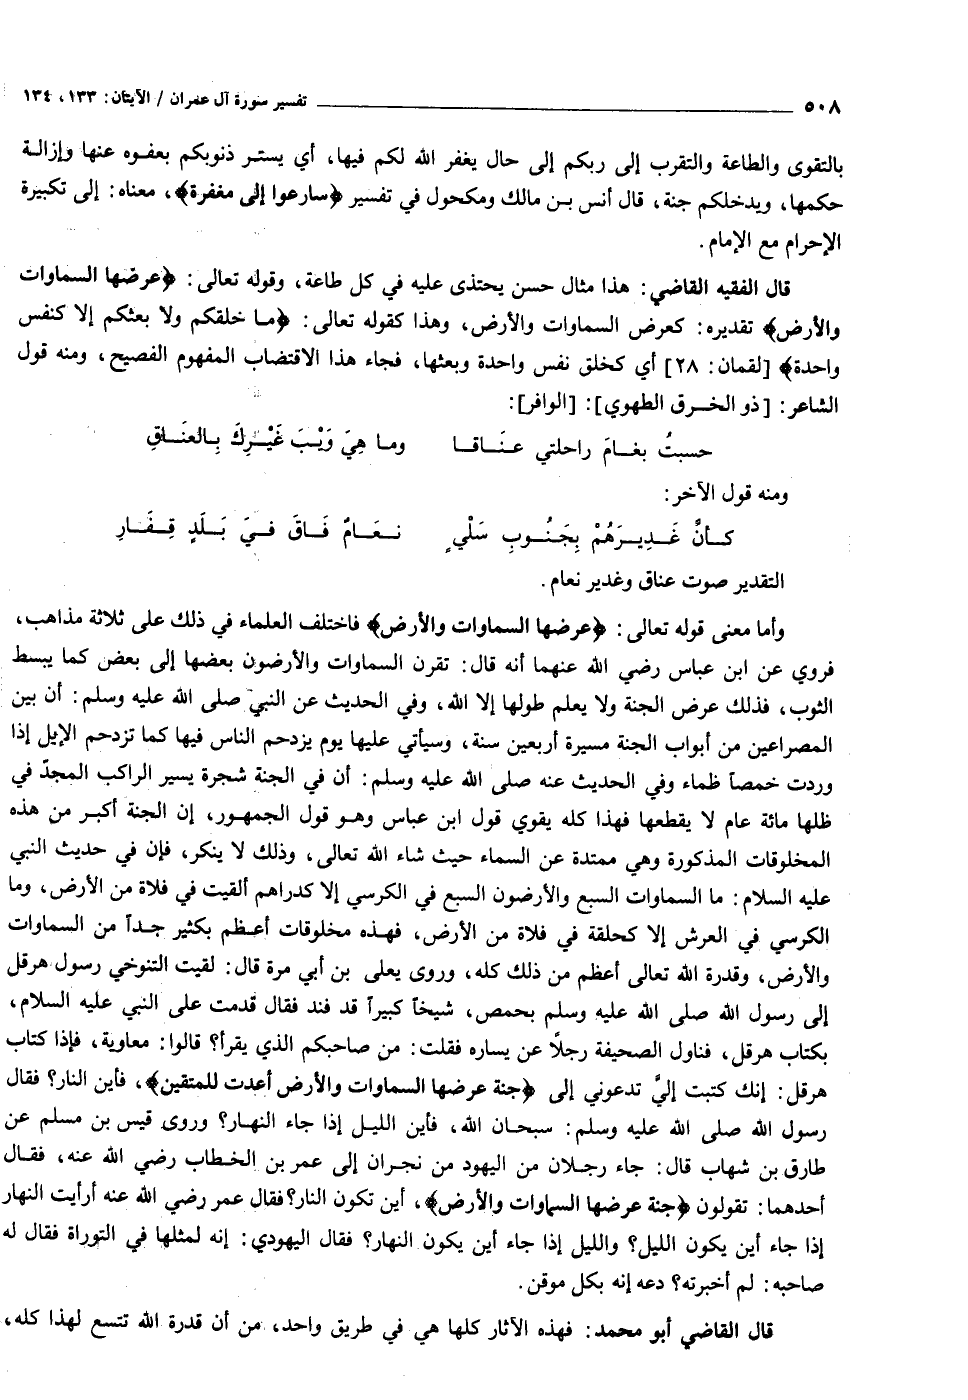 ٥٠٨ ــــــــــ تفسير سورة آل عمران / الآيتان: ١٣٣، ١٣٤
بالتقوى والطاعة والتقرب إلى ربكم إلى حال يغفر الله لكم فيها، أي يستر ذنوبكم بعفوه عنها وإزالة
حكمها، ويدخلكم جنة، قال أنس بن مالك ومكحول في تفسير ﴿سارعوا إلى مغفرة﴾، معناه: إلى تكبيرة
الإحرام مع الإمام.
قال الفقيه القاضي: هذا مثال حسن يحتذى عليه في كل طاعة، وقوله تعالى: ﴿عرضها السماوات
والأرض﴾ تقديره: كعرض السماوات والأرض، وهذا كقوله تعالى: ﴿ما خلقكم ولا بعثكم إلا كنفس
واحدة﴾ [لقمان: ٢٨] أي كخلق نفس واحدة وبعثها، فجاء هذا الاقتضاب المفهوم الفصيح، ومنه قول
الشاعر: [ذو الخرق الطهوي]: [الوافر]:
حسبتُ بغامَ راحلتي عنَاقا وما هِيَ وَيْبَ غَيْرِكَ بالعنَاقِ
ومنه قول الآخر:
كأنَّ غَدِيرَهُمْ بِجَنُوبِ سَلْيٍ نعَامٌ فَاقَ فيَ بَلَدٍ قِفَارِ
التقدير صوت عناق وغدير نعام.
وأما معنى قوله تعالى: ﴿عرضها السماوات والأرض﴾ فاختلف العلماء في ذلك على ثلاثة مذاهب،
فروي عن ابن عباس رضي الله عنهما أنه قال: تقرن السماوات والأرضون بعضها إلى بعض كما يبسط
الثوب، فذلك عرض الجنة ولا يعلم طولها إلا الله، وفي الحديث عن النبي صلى الله عليه وسلم: أن بين
المصراعين من أبواب الجنة مسيرة أربعين سنة، وسيأتي عليها يوم يزدحم الناس فيها كما تزدحم الإبل إذا
وردت خمصاً ظماء وفي الحديث عنه صلى الله عليه وسلم: أن في الجنة شجرة يسير الراكب المجدّ في
ظلها مائة عام لا يقطعها فهذا كله يقوي قول ابن عباس وهو قول الجمهور، إن الجنة أكبر من هذه
المخلوقات المذكورة وهي ممتدة عن السماء حيث شاء الله تعالى، وذلك لا ينكر، فإن في حديث النبي
عليه السلام: ما السماوات السبع والأرضون السبع في الكرسي إلا كدراهم ألقيت في فلاة من الأرض، وما
الكرسي في العرش إلا كحلقة في فلاة من الأرض، فهذه مخلوقات أعظم بكثير جداً من السماوات
والأرض، وقدرة الله تعالى أعظم من ذلك كله، وروى يعلى بن أبي مرة قال: لقيت التنوخي رسول هرقل
إلى رسول الله صلى الله عليه وسلم بحمص، شيخاً كبيراً قد فند فقال قدمت على النبي عليه السلام،
بكتاب هرقل، فناول الصحيفة رجلاً عن يساره فقلت: من صاحبكم الذي يقرأ؟ قالوا: معاوية، فإذا كتاب
هرقل: إنك كتبت إليَّ تدعوني إلى ﴿جنة عرضها السماوات والأرض أعدت للمتقين﴾، فأين النار؟ فقال
رسول الله صلى الله عليه وسلم: سبحان الله، فأين الليل إذا جاء النهار؟ وروى قيس بن مسلم عن
طارق بن شهاب قال: جاء رجلان من اليهود من نجران إلى عمر بن الخطاب رضي الله عنه، فقال
أحدهما: تقولون ﴿جنة عرضها السماوات والأرض﴾، أين تكون النار؟ فقال عمر رضي الله عنه أرأيت النهار
إذا جاء أين يكون الليل؟ والليل إذا جاء أين يكون النهار؟ فقال اليهودي: إنه لمثلها في التوراة فقال له
صاحبه: لم أخبرته؟ دعه إنه بكل موقن.
قال القاضي أبو محمد: فهذه الآثار كلها هي في طريق واحد، من أن قدرة الله تتسع لهذا كله،